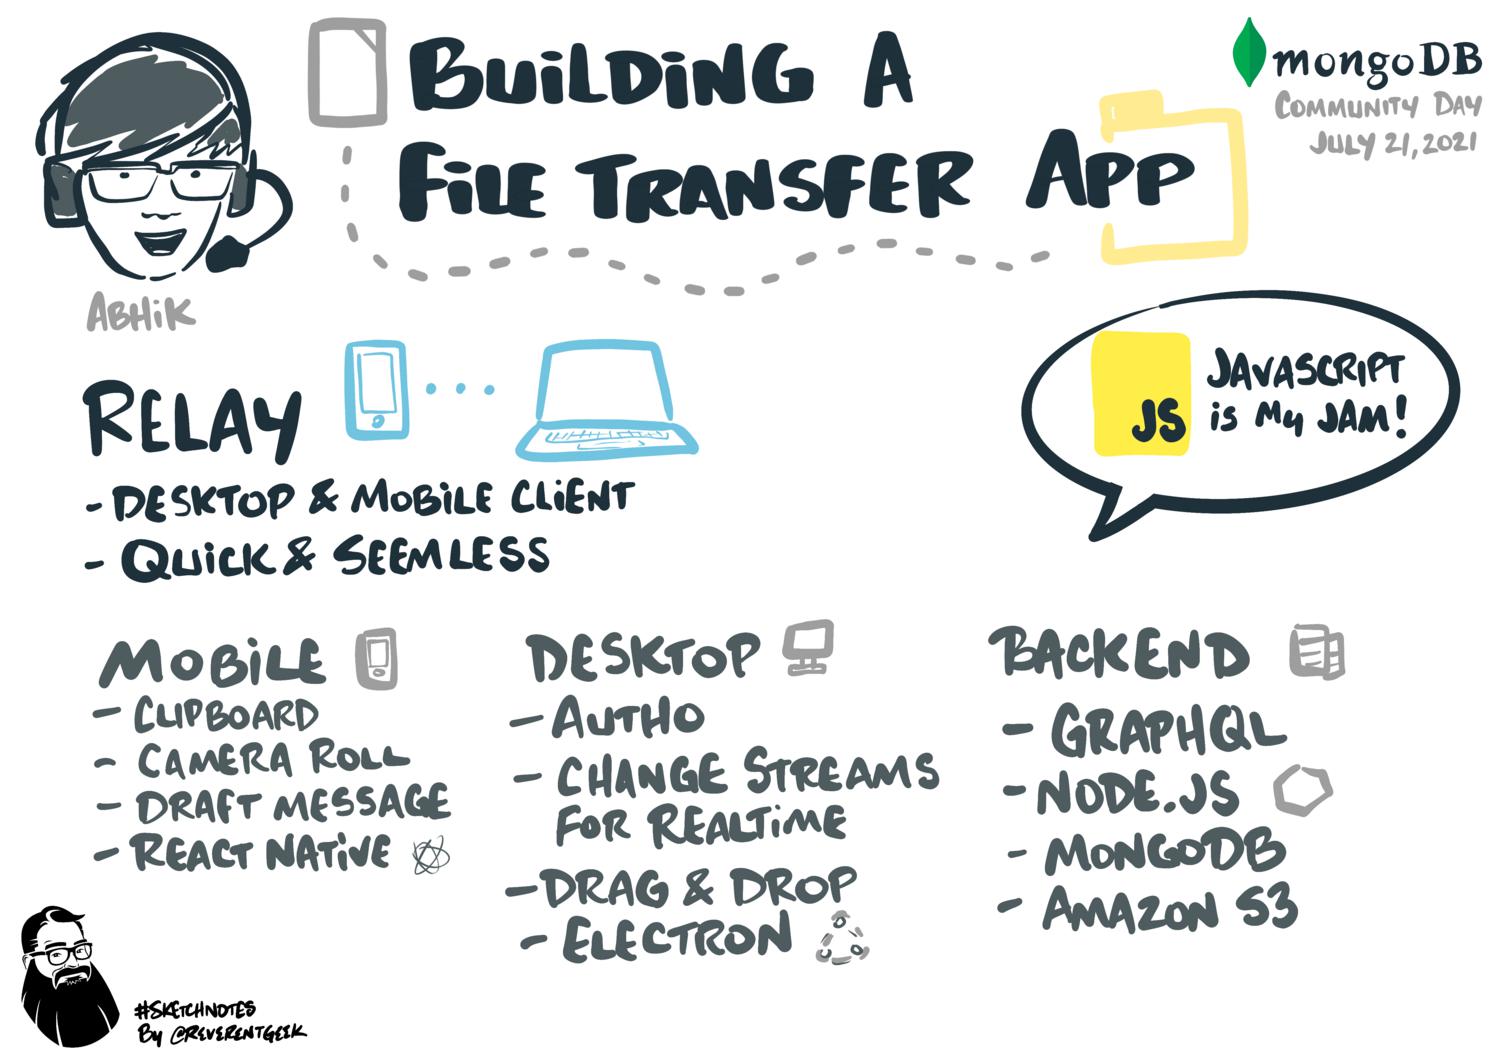 BUILDING A
FILE TRANSFER APP
mongoDB
COMMUNITY DAY
JULY 21, 2021
ABHIK
RELAY
- DESKTOP & MOBILE CLIENT
- QUICK & SEEMLESS
JS
JAVASCRIPT
IS MY JAM!
MOBILE
- CLIPBOARD
- CAMERA ROLL
- DRAFT MESSAGE
- REACT NATIVE
DESKTOP
- AUTH0
- CHANGE STREAMS
FOR REALTIME
- DRAG & DROP
- ELECTRON
BACKEND
- GRAPHQL
- NODE.JS
- MONGODB
- AMAZON S3
#SKETCHNOTES
By @REVERENTGEEK